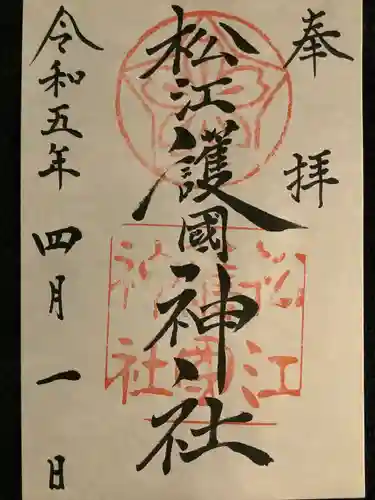 奉拝
松江護國神社
令和五年四月一日
松江
護國
神社